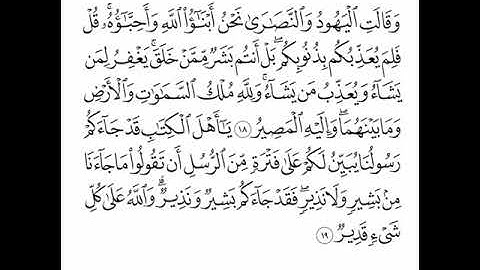 وَقَالَتِ ٱلۡيَهُودُ وَٱلنَّصَـٰرَىٰ نَحۡنُ أَبۡنَـٰٓؤُاْ ٱللَّهِ وَأَحِبَّـٰٓؤُهُۥۚ قُلۡ
فَلِمَ يُعَذِّبُكُم بِذُنُوبِكُمۖ بَلۡ أَنتُم بَشَرٞ مِّمَّنۡ خَلَقَۚ يَغۡفِرُ لِمَن
يَشَآءُ وَيُعَذِّبُ مَن يَشَآءُۚ وَلِلَّهِ مُلۡكُ ٱلسَّمَـٰوَٰتِ وَٱلۡأَرۡضِ
وَمَا بَيۡنَهُمَاۖ وَإِلَيۡهِ ٱلۡمَصِيرُ ١٨ يَـٰٓأَهۡلَ ٱلۡكِتَـٰبِ قَدۡ جَآءَكُمۡ
رَسُولُنَا يُبَيِّنُ لَكُمۡ عَلَىٰ فَتۡرَةٖ مِّنَ ٱلرُّسُلِ أَن تَقُولُواْ مَا جَآءَنَا
مِنۢ بَشِيرٖ وَلَا نَذِيرٖۖ فَقَدۡ جَآءَكُم بَشِيرٞ وَنَذِيرٞۗ وَٱللَّهُ عَلَىٰ كُلِّ
شَيۡءٖ قَدِيرٞ ١٩